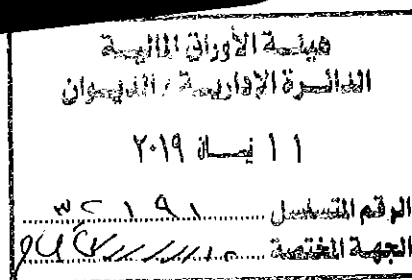 هيئة الأوراق المالية
الدائرة الإدارية / الديوان
١١ نيسان ٢٠١٩
الرقم المتسلسل ٣٢١٩١
الجهة المختصة